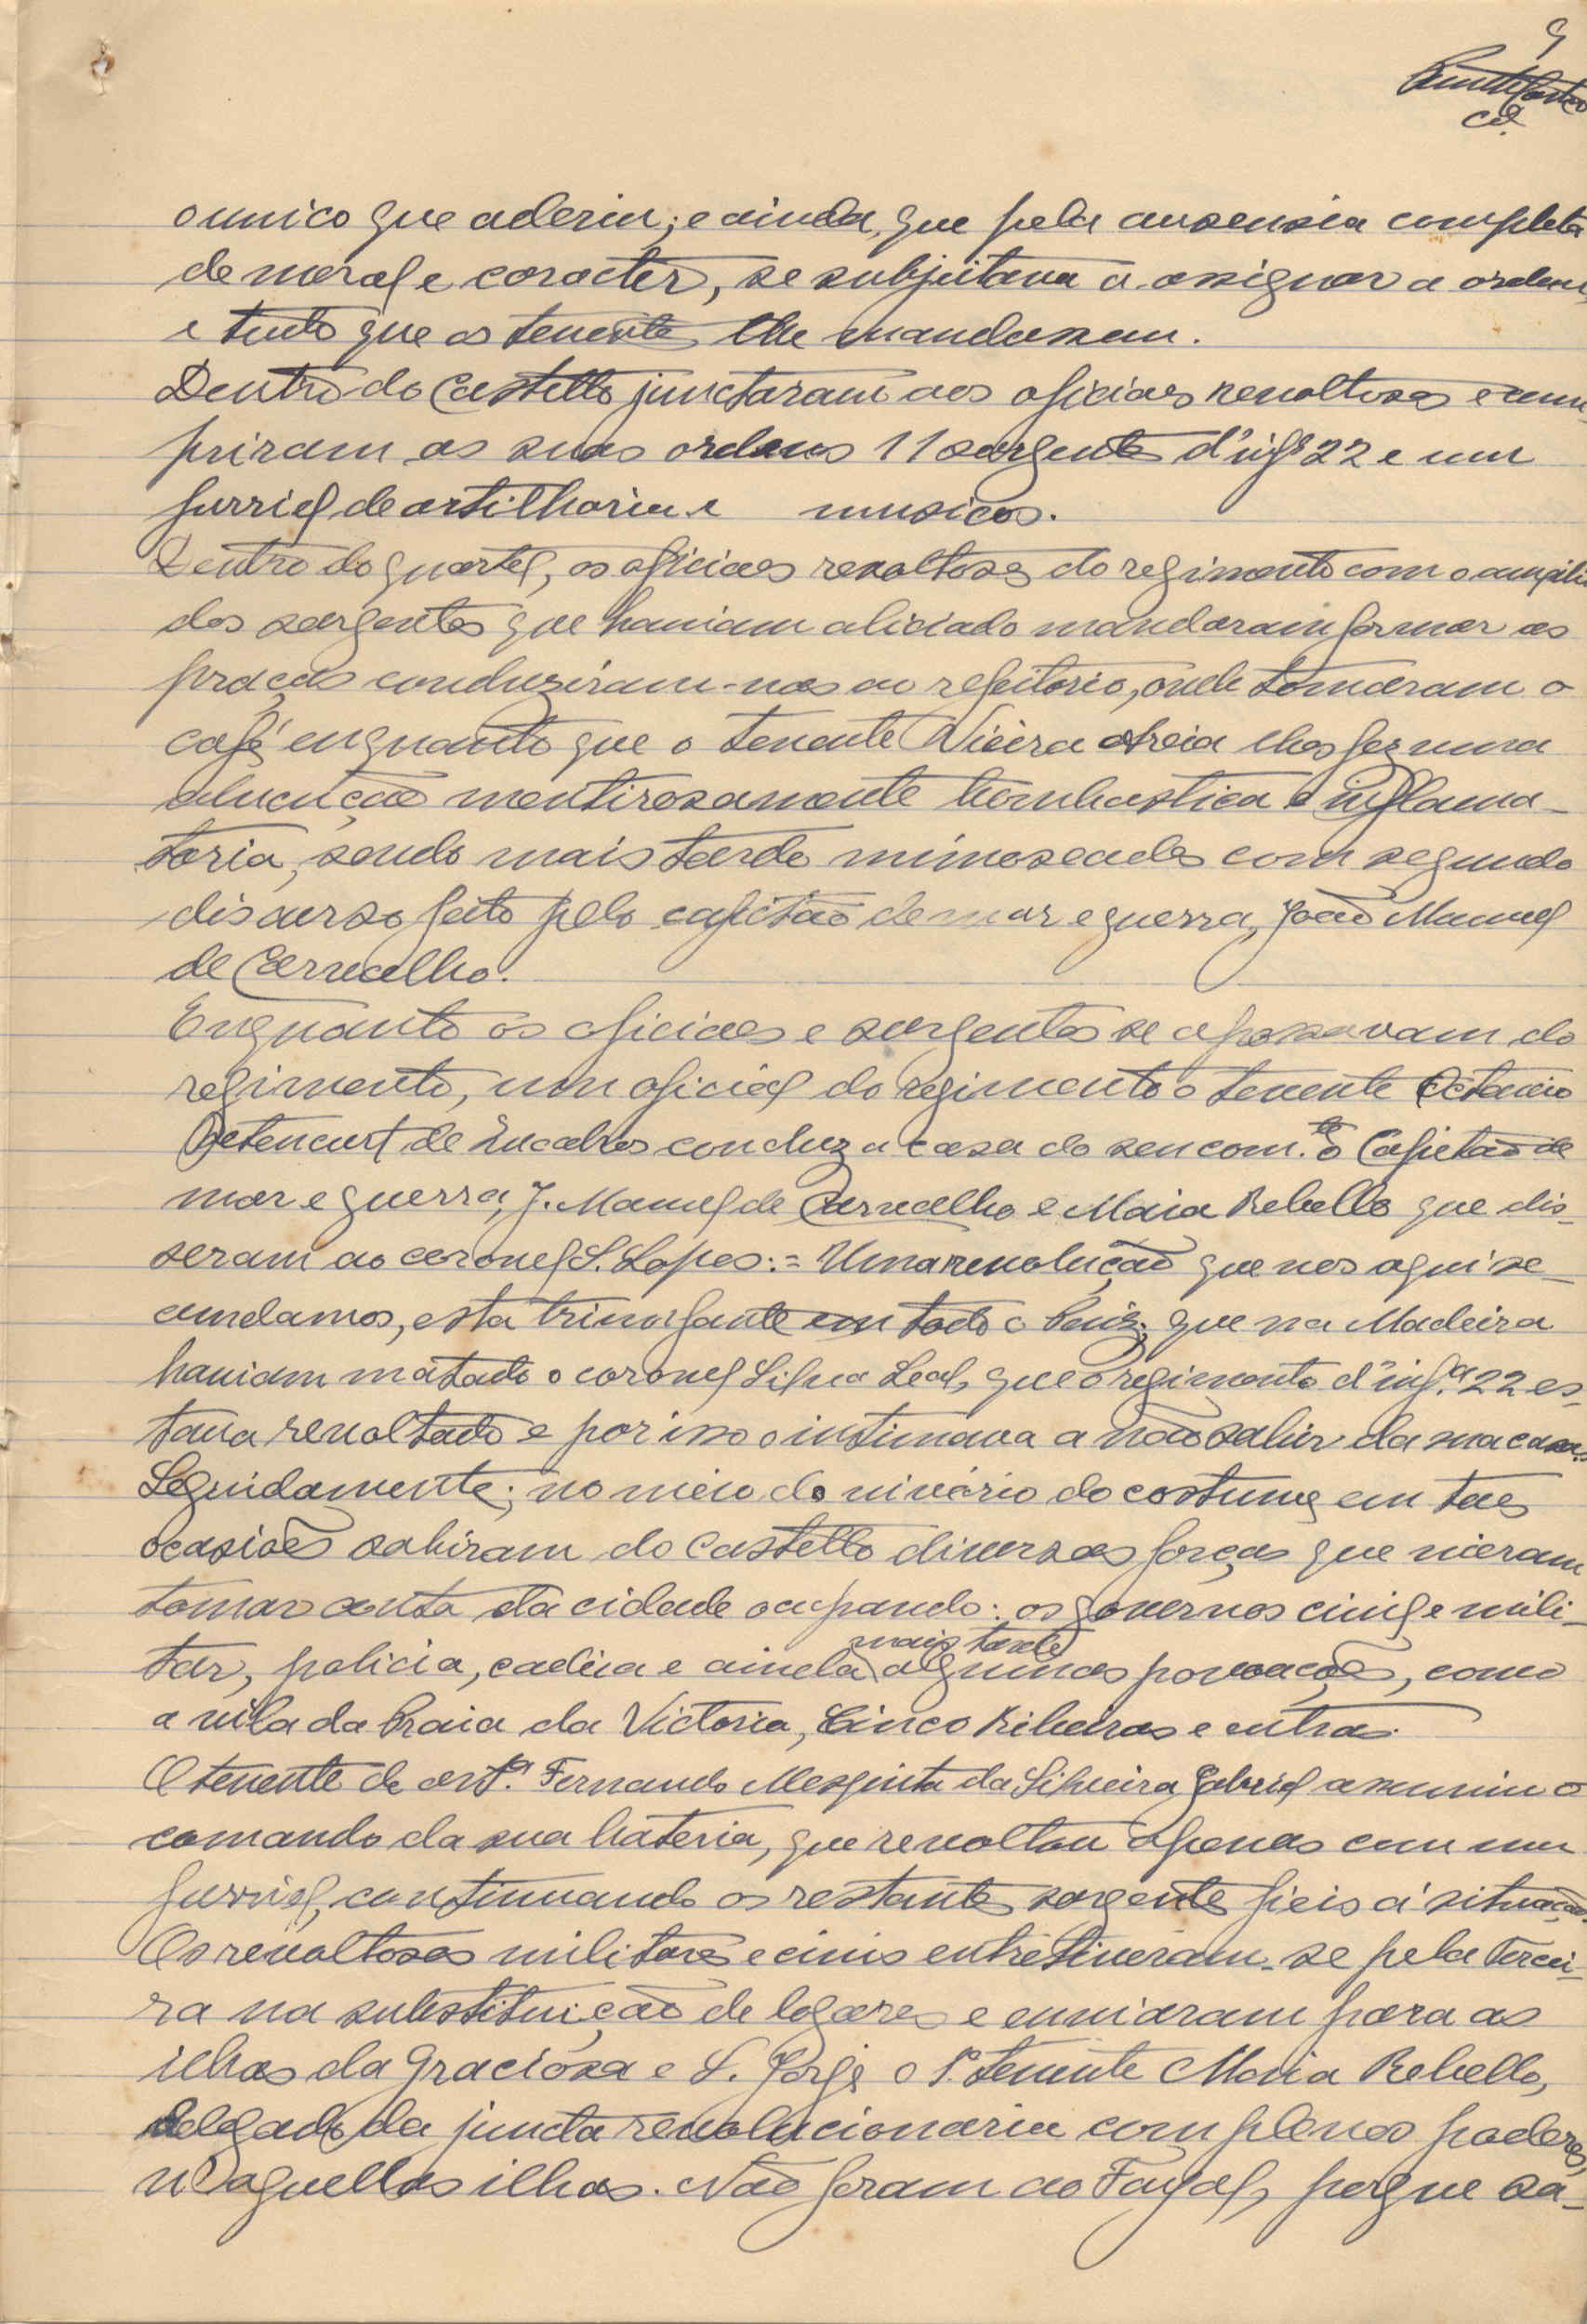 9
cap.
o unico que aderiu; e ainda, que pela ausensia completa
de moral e coracter, se subjeitava a assignar a ordem
e tudo que os tenentes lhe mandassem.
Dentro do Castello junctaram aos oficiaes revoltosos e cum-
priram as suas ordens 11 sargentos d'infª 22 e um
furriel de artilharia e musicos.
Dentro do quartel, os oficiaes revoltosos do regimento com o auxilio
dos sargentos que haviam aliciado mandaram formar as
praças conduziram-nas ao refeitorio, onde tomaram o
café enquanto que o tenente Vieira Areia lhes fez uma
alucução mentirosamente bombastica e inflama-
toria, sendo mais tarde mimoseados com segundo
discurso feito pelo capitão de mar e guerra, João Manuel
de Carvalho.
Enquanto os oficiaes e sargentos se aposavam do
regimento, um oficial do regimento o tenente Octavio
Betencurt de Lucabros conduz a casa do seu com.te o Capitão de
mar e guerra, J. Manuel de Carvalho e Maia Rebello que dis-
seram ao coronel S. Lopes:= Uma revolução que nos aqui se-
cundamos, esta triunfante em todo o Paiz; que na Madeira
haviam matado o coronel Silva Leal, que o regimento d'inf.ª 22 es-
tava revoltado e por isso o intimava a não sahir da sua casa.
Seguidamente; no meio do vivório do costume em taes
ocasiões sahiram do Castello diversas forças que vieram
tomar conta da cidade ocupando: os governos civil e mili-
tar, policia, cadeia e ainda mais tarde algumas povoações, como
a vila da Praia da Victoria, Cinco Ribeiras e outras.
O tenente de art.ª Fernando Mesquita da Silveira Gabriel assumiu o
comando da sua bateria, que revoltou apenas com um
furriel, continuando os restantes sargentos fieis á situação.
Os revoltosos militares e civis entretiveram-se pela Tercei-
ra na substituição de logares e enviaram para as
ilhas da Graciosa e S. Jorge o 1º tenente Maia Rebello,
delegado da juncta revolucionaria com plenos poderes,
n'aquellas ilhas. Não foram ao Fayal, porque sa-